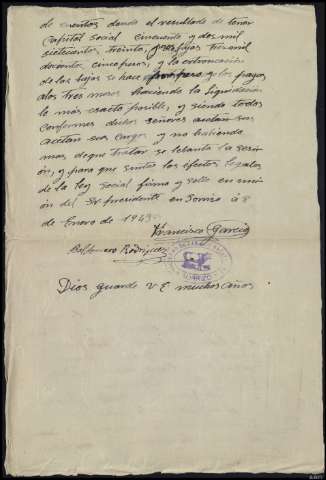 de cuentas dando el resultado de tener
Capital social cincuenta y dos mil
setecientos treinta, y las fajas tres mil
docientos cinco fresos, y la
de las bajas se hace y los pagos
a los tres meses haciendo la liquidación
lo más exacta posible, y siendo todos
conformes dichos señores
acetan sus cargos y no habiendo
mas de que tratar se lebanta la sesi
ón, y para que surta los efectos legales
de la ley social firmo y sello en uni
ón del Sr Presidente en Somio á 8
de Enero de 1943
Francisco Garcia
Baldomero Rodriguez
Dios guarde V E muchos años